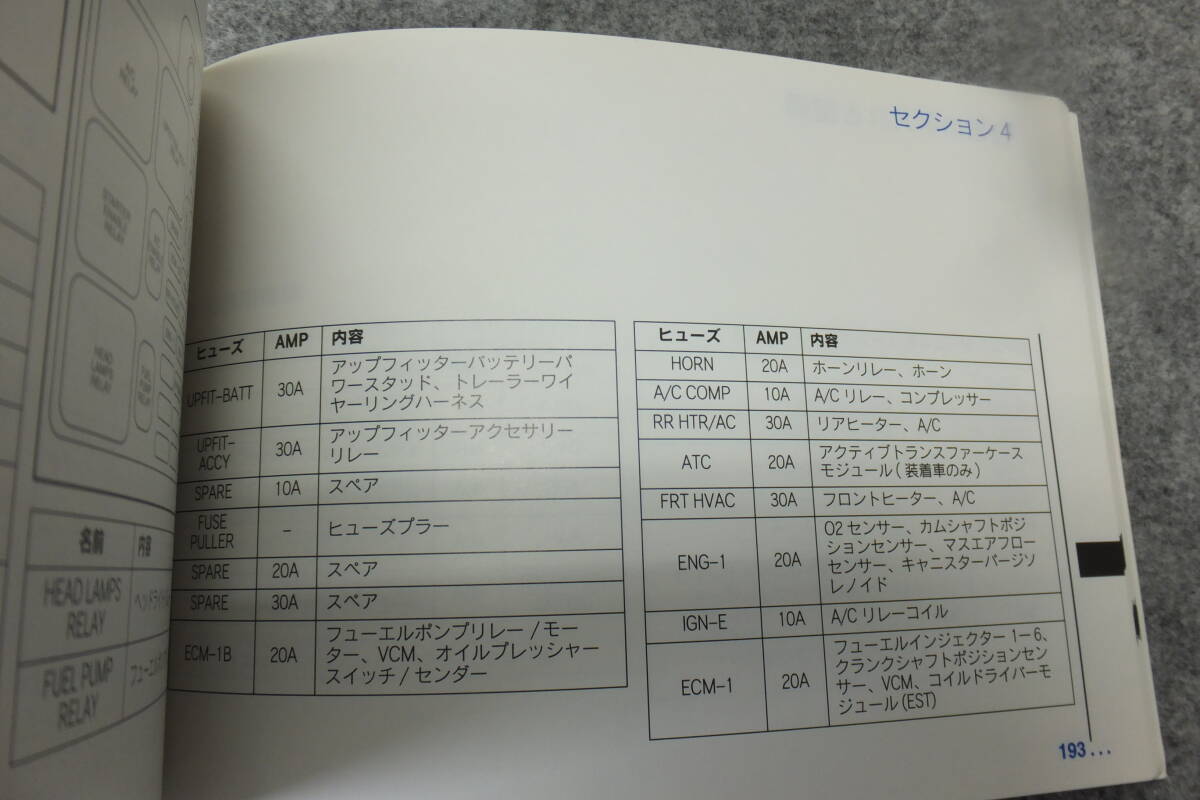 A/C
RELAY
STARTER
ENABLE
RELAY
HEAD
LAMPS
RELAY
FUEL
PUMP
RELAY
名前 内容
HEAD LAMPS
RELAY
ヘッドライト
FUEL PUMP
RELAY
フューエル
セクション 4
ヒューズ AMP 内容
UPFIT-BATT 30A アップフィッターバッテリーパ
ワースタッド、トレーラーワイ
ヤーリングハーネス
UPFIT-
ACCY
30A アップフィッターアクセサリー
リレー
SPARE 10A スペア
FUSE
PULLER
- ヒューズプラー
SPARE 20A スペア
SPARE 30A スペア
ECM-1B 20A フューエルポンプリレー/モー
ター、VCM、オイルプレッシャー
スイッチ/センダー
ヒューズ AMP 内容
HORN 20A ホーンリレー、ホーン
A/C COMP 10A A/C リレー、コンプレッサー
RR HTR/AC 30A リアヒーター、A/C
ATC 20A アクティブトランスファーケース
モジュール(装着車のみ)
FRT HVAC 30A フロントヒーター、A/C
ENG-1 20A O2 センサー、カムシャフトポジ
ションセンサー、マスエアフロー
センサー、キャニスターパージソ
レノイド
IGN-E 10A A/C リレーコイル
ECM-1 20A フューエルインジェクター 1-6、
クランクシャフトポジションセン
サー、VCM、コイルドライバーモ
ジュール(EST)
193...